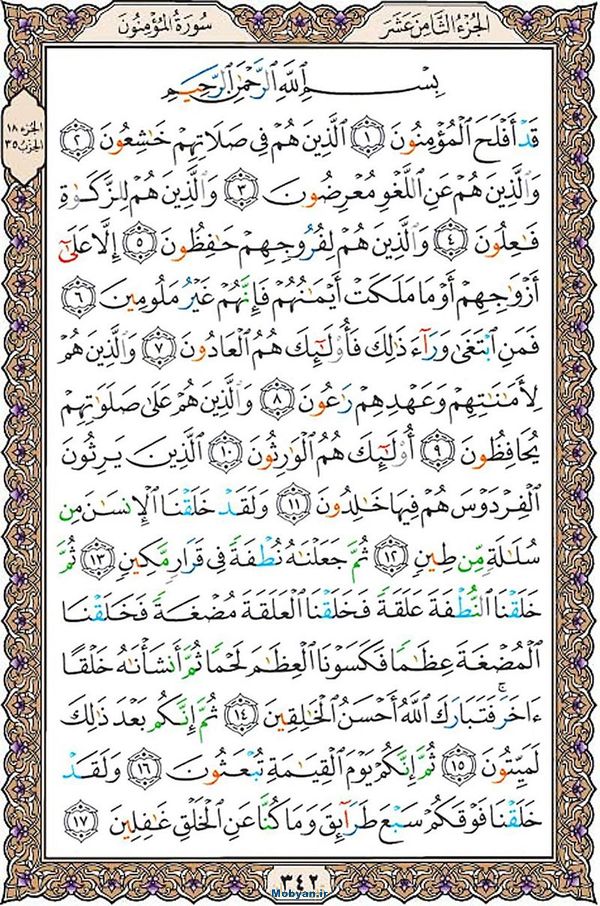 سُورَةُ المُؤْمِنُونَ
الجُزْءُ الثَّامِنَ عَشَرَ
الجزء ١٨
الحزب ٣٥
بِسْمِ ٱللَّهِ ٱلرَّحْمَٰنِ ٱلرَّحِيمِ
قَدْ أَفْلَحَ ٱلْمُؤْمِنُونَ ١ ٱلَّذِينَ هُمْ فِى صَلَاتِهِمْ خَٰشِعُونَ ٢
وَٱلَّذِينَ هُمْ عَنِ ٱللَّغْوِ مُعْرِضُونَ ٣ وَٱلَّذِينَ هُمْ لِلزَّكَوٰةِ
فَٰعِلُونَ ٤ وَٱلَّذِينَ هُمْ لِفُرُوجِهِمْ حَٰفِظُونَ ٥ إِلَّا عَلَىٰٓ
أَزْوَٰجِهِمْ أَوْ مَا مَلَكَتْ أَيْمَٰنُهُمْ فَإِنَّهُمْ غَيْرُ مَلُومِينَ ٦
فَمَنِ ٱبْتَغَىٰ وَرَآءَ ذَٰلِكَ فَأُو۟لَٰٓئِكَ هُمُ ٱلْعَادُونَ ٧ وَٱلَّذِينَ هُمْ
لِأَمَٰنَٰتِهِمْ وَعَهْدِهِمْ رَٰعُونَ ٨ وَٱلَّذِينَ هُمْ عَلَىٰ صَلَوَٰتِهِمْ
يُحَافِظُونَ ٩ أُو۟لَٰٓئِكَ هُمُ ٱلْوَٰرِثُونَ ١٠ ٱلَّذِينَ يَرِثُونَ
ٱلْفِرْدَوْسَ هُمْ فِيهَا خَٰلِدُونَ ١١ وَلَقَدْ خَلَقْنَا ٱلْإِنسَٰنَ مِن
سُلَٰلَةٍ مِّن طِينٍ ١٢ ثُمَّ جَعَلْنَٰهُ نُطْفَةً فِى قَرَارٍ مَّكِينٍ ١٣ ثُمَّ
خَلَقْنَا ٱلنُّطْفَةَ عَلَقَةً فَخَلَقْنَا ٱلْعَلَقَةَ مُضْغَةً فَخَلَقْنَا
ٱلْمُضْغَةَ عِظَٰمًا فَكَسَوْنَا ٱلْعِظَٰمَ لَحْمًا ثُمَّ أَنشَأْنَٰهُ خَلْقًا
ءَاخَرَ ۚ فَتَبَارَكَ ٱللَّهُ أَحْسَنُ ٱلْخَٰلِقِينَ ١٤ ثُمَّ إِنَّكُم بَعْدَ ذَٰلِكَ
لَمَيِّتُونَ ١٥ ثُمَّ إِنَّكُمْ يَوْمَ ٱلْقِيَٰمَةِ تُبْعَثُونَ ١٦ وَلَقَدْ
خَلَقْنَا فَوْقَكُمْ سَبْعَ طَرَآئِقَ وَمَا كُنَّا عَنِ ٱلْخَلْقِ غَٰفِلِينَ ١٧
٣٤٢
Mobyan.ir